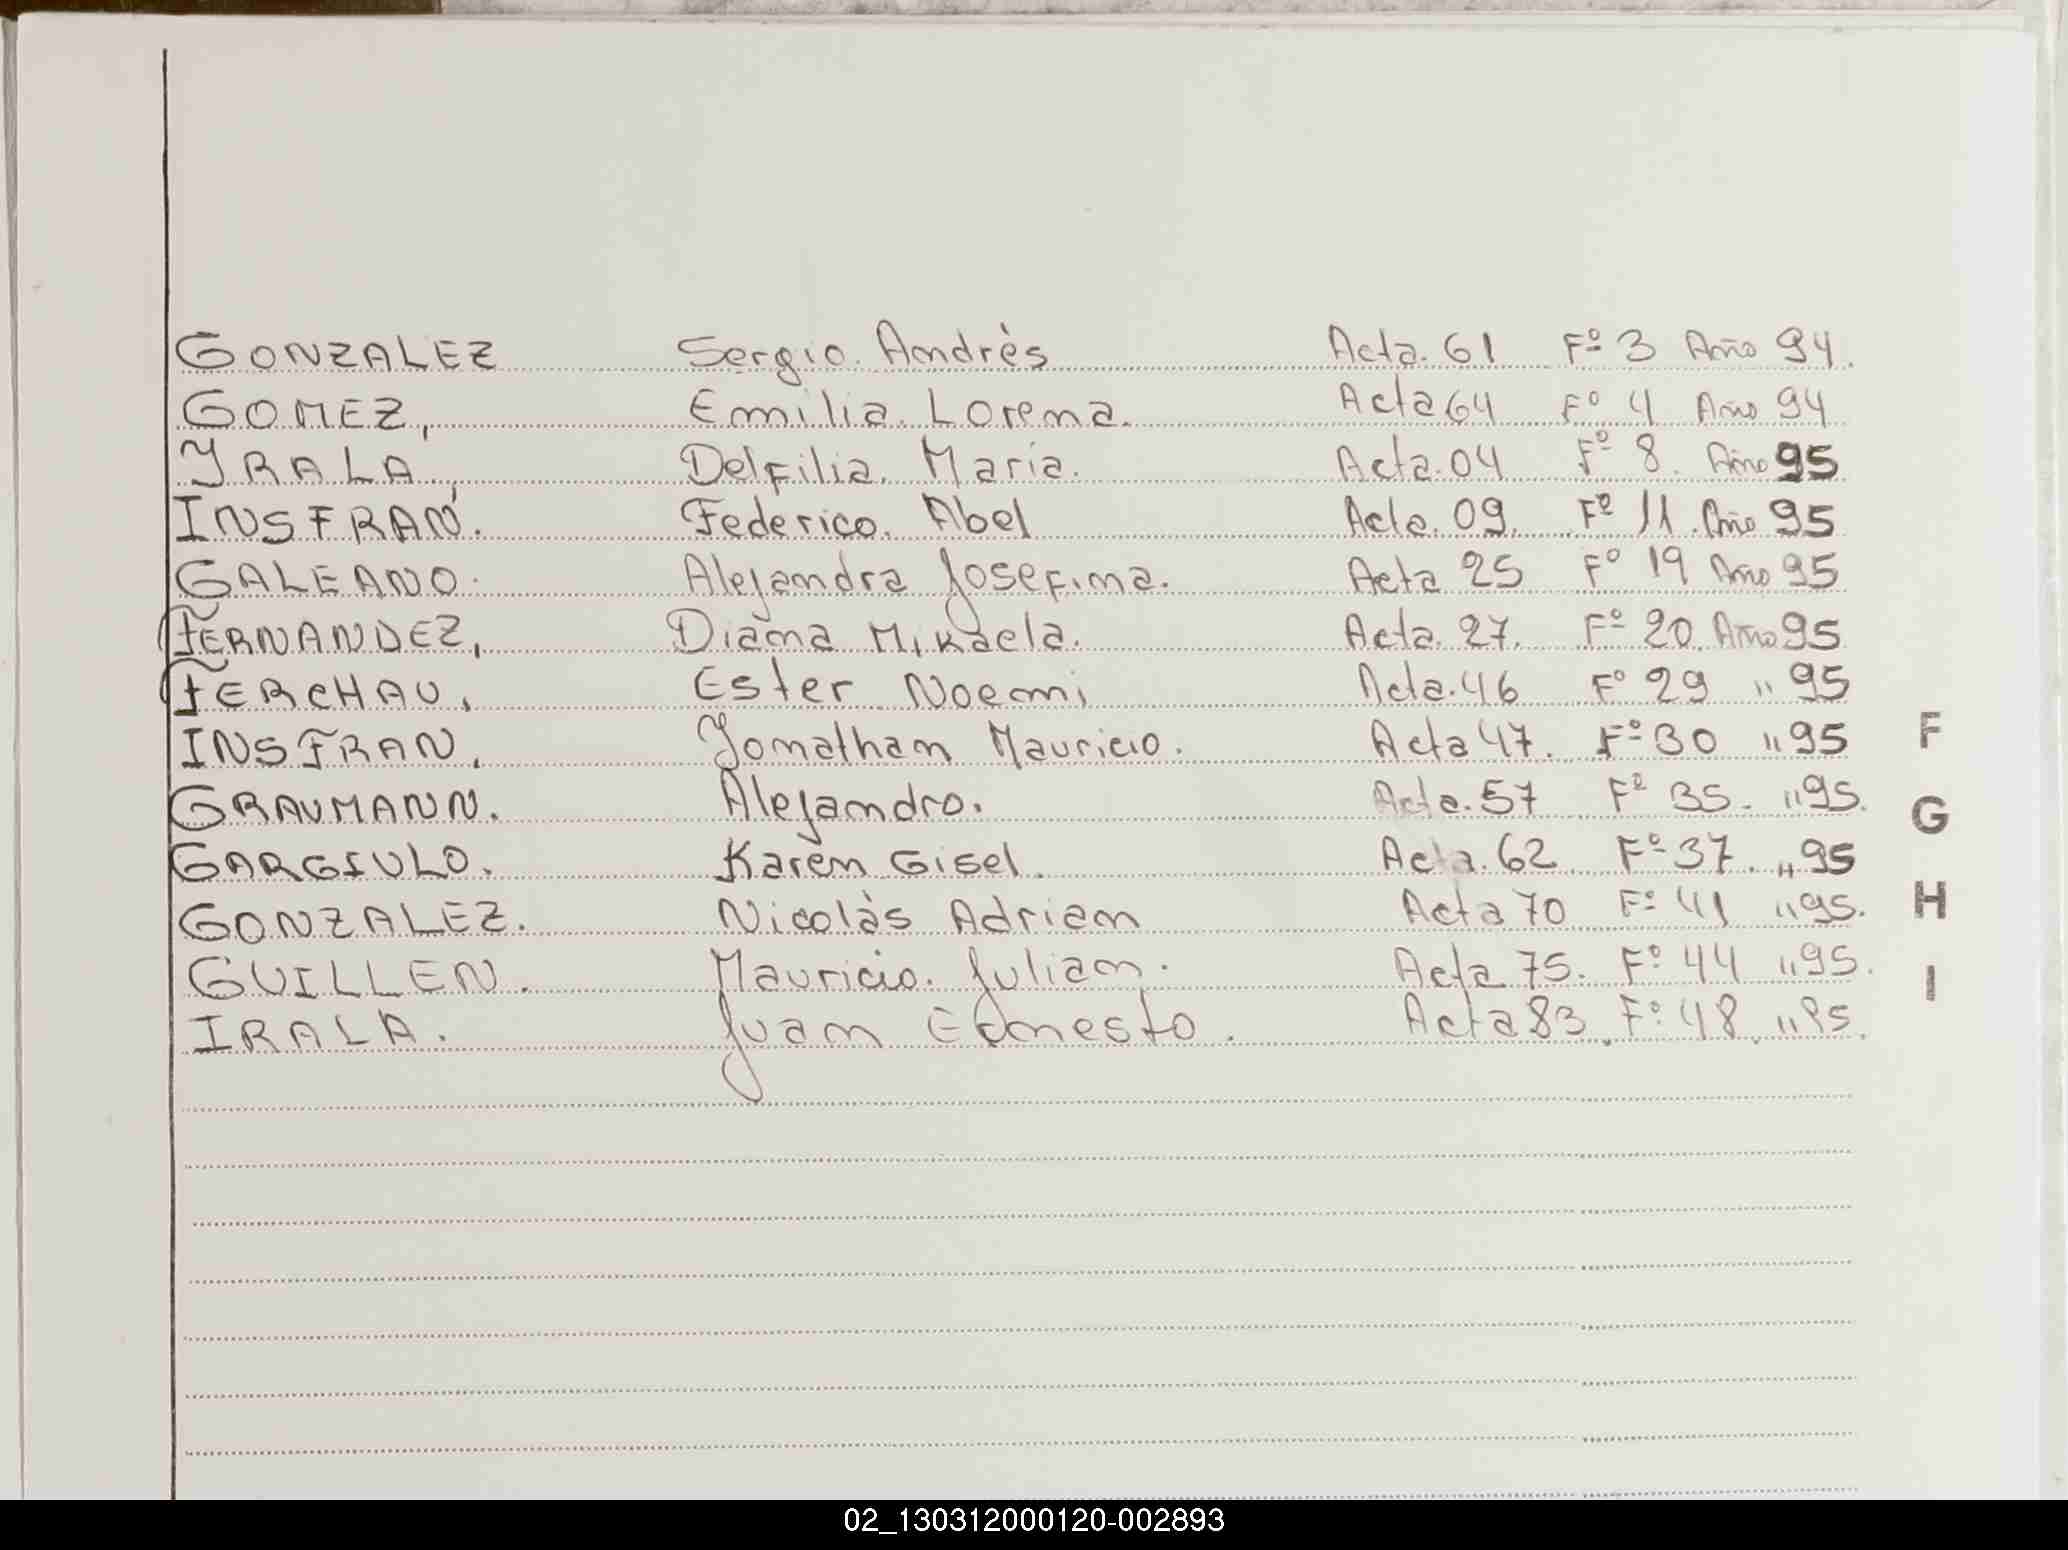 GONZALEZ Sergio Andrès Acta 61 Fº 3 Año 94.
GOMEZ, Emilia Lorena. Acta 64 Fº 4 Año 94
YRALA, Delfilia María. Acta 04 Fº 8. Año 95
INSFRAN. Federico Abel Acta 09. Fº 11 Año 95
GALEANO. Alejandra Josefina. Acta 25 Fº 19 Año 95
FERNANDEZ, Diana Mikaela. Acta 27. Fº 20 Año 95
FERCHAU, Ester Noemi Acta 46 Fº 29 " 95
INSFRAN, Jonathan Mauricio. Acta 47. Fº 30 " 95
F
GRAUMANN. Alejandro. Acta 57 Fº 35. " 95.
G
GARGIULO. Karen Gisel. Acta 62 Fº 37. " 95
GONZALEZ. Nicolàs Adrian Acta 70 Fº 41 " 95.
H
GUILLEN. Mauricio Julian. Acta 75. Fº 44 " 95.
I
IRALA. Juan Ernesto. Acta 83. Fº 48 " 95.
02_130312000120-002893